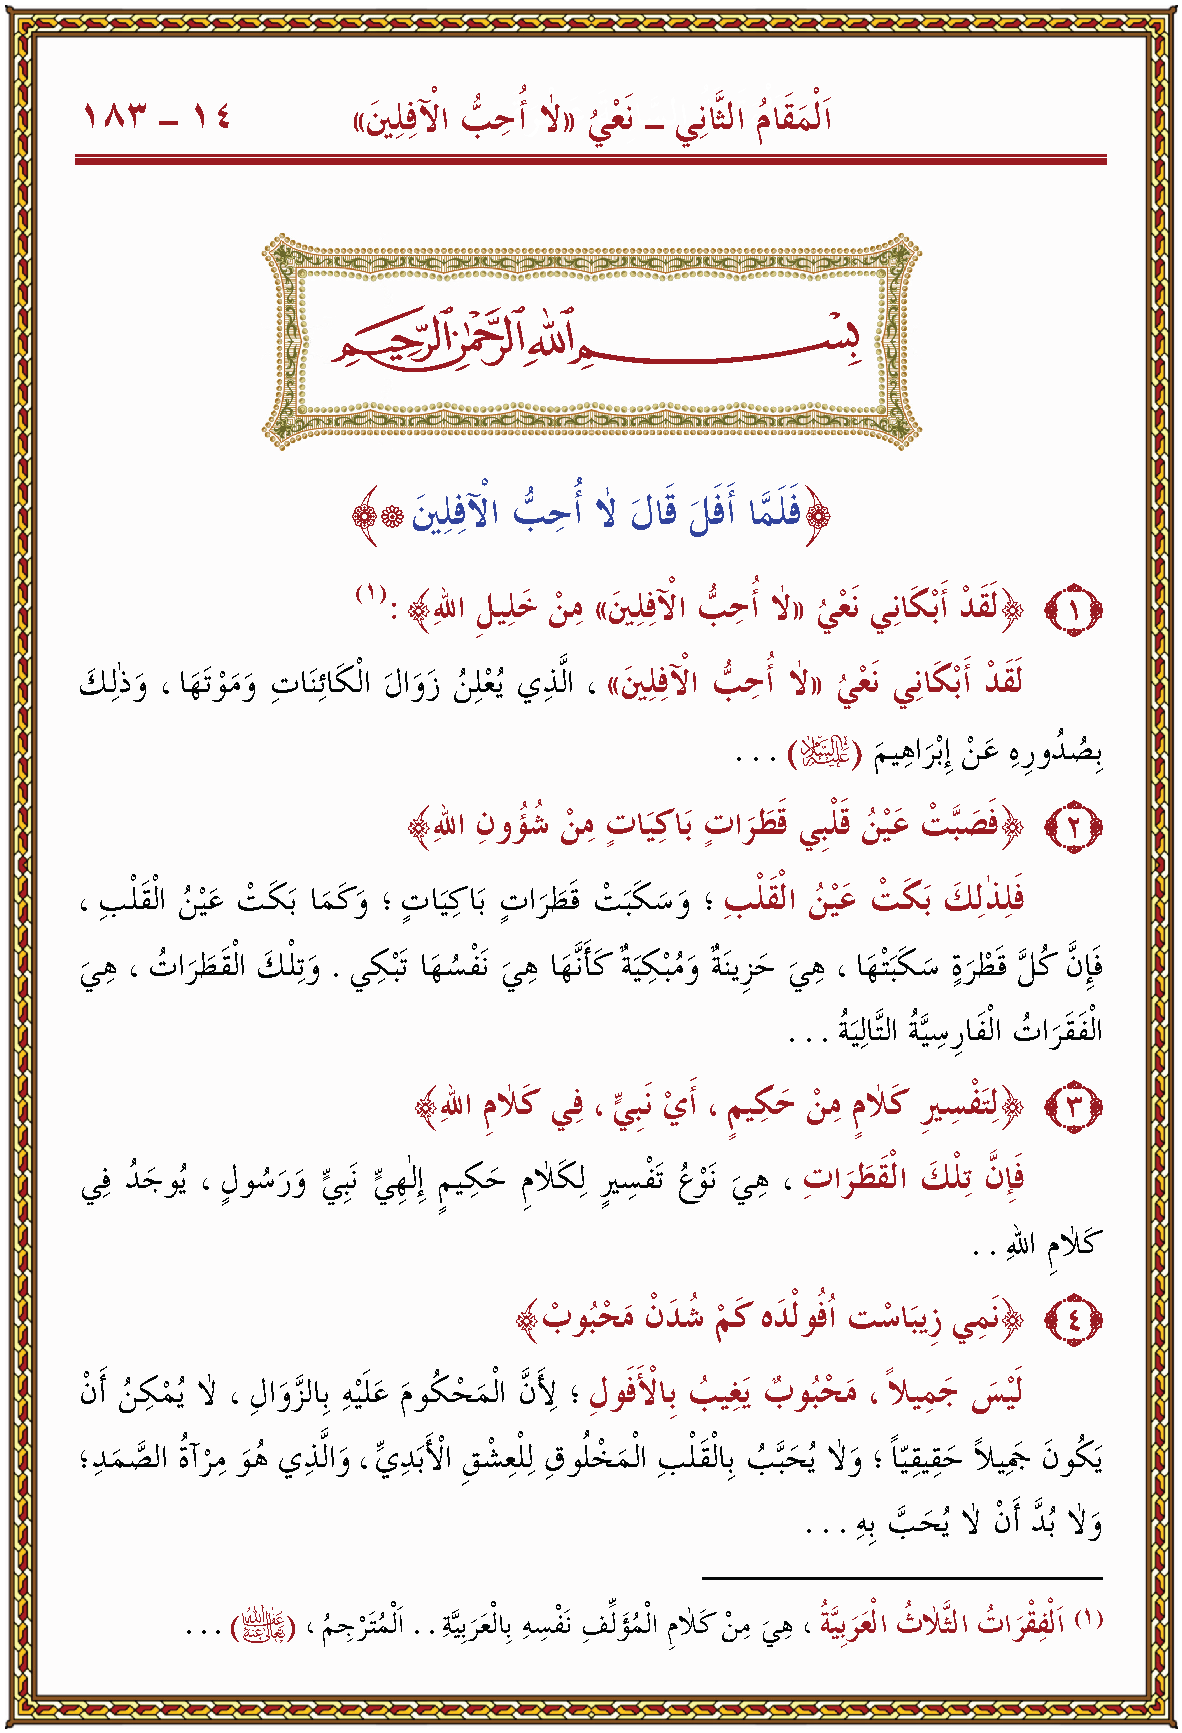 اَلْمَقَامُ الثَّانِي – نَعْيُ «لاٰ أُحِبُّ الْآفِلِينَ» ١٤ – ١٨٣
بِسْمِ اللهِ الرَّحْمٰنِ الرَّحِيمِ
﴿فَلَمَّا أَفَلَ قَالَ لاٰ أُحِبُّ الْآفِلِينَ ۞﴾
﴿١﴾ ﴿لَقَدْ أَبْكَانِي نَعْيُ «لاٰ أُحِبُّ الْآفِلِينَ» مِنْ خَلِيلِ اللهِ﴾ :(١)
لَقَدْ أَبْكَانِي نَعْيُ «لاٰ أُحِبُّ الْآفِلِينَ» ، الَّذِي يُعْلِنُ زَوَالَ الْكَائِنَاتِ وَمَوْتَهَا ، وَذٰلِكَ
بِصُدُورِهِ عَنْ إِبْرَاهِيمَ (عَلَيْهِ السَّلَامُ) . . .
﴿٢﴾ ﴿فَصَبَّتْ عَيْنُ قَلْبِي قَطَرَاتٍ بَاكِيَاتٍ مِنْ شُؤُونِ اللهِ﴾
فَلِذٰلِكَ بَكَتْ عَيْنُ الْقَلْبِ ؛ وَسَكَبَتْ قَطَرَاتٍ بَاكِيَاتٍ ؛ وَكَمَا بَكَتْ عَيْنُ الْقَلْبِ ،
فَإِنَّ كُلَّ قَطْرَةٍ سَكَبَتْهَا ، هِيَ حَزِينَةٌ وَمُبْكِيَةٌ كَأَنَّهَا هِيَ نَفْسُهَا تَبْكِي . وَتِلْكَ الْقَطَرَاتُ ، هِيَ
الْفَقَرَاتُ الْفَارِسِيَّةُ التَّالِيَةُ . . .
﴿٣﴾ ﴿لِتَفْسِيرِ كَلاٰمٍ مِنْ حَكِيمٍ ، أَيْ نَبِيٍّ ، فِي كَلاٰمِ اللهِ﴾
فَإِنَّ تِلْكَ الْقَطَرَاتِ ، هِيَ نَوْعُ تَفْسِيرٍ لِكَلاٰمِ حَكِيمٍ إِلٰهِيٍّ نَبِيٍّ وَرَسُولٍ ، يُوجَدُ فِي
كَلاٰمِ اللهِ . .
﴿٤﴾ ﴿نَمِي زِيبَاسْت اُفُولْدَه كَمْ شُدَنْ مَحْبُوبْ﴾
لَيْسَ جَمِيلاً ، مَحْبُوبٌ يَغِيبُ بِالْأَفُولِ ؛ لِأَنَّ الْمَحْكُومَ عَلَيْهِ بِالزَّوَالِ ، لاٰ يُمْكِنُ أَنْ
يَكُونَ جَمِيلاً حَقِيقِيّاً ؛ وَلاٰ يُحَبُّ بِالْقَلْبِ الْمَخْلُوقِ لِلْعِشْقِ الْأَبَدِيِّ ، وَالَّذِي هُوَ مِرْآةُ الصَّمَدِ ؛
وَلاٰ بُدَّ أَنْ لاٰ يُحَبَّ بِهِ . . .
(١) اَلْفِقْرَاتُ الثَّلاٰثُ الْعَرَبِيَّةُ ، هِيَ مِنْ كَلاٰمِ الْمُؤَلِّفِ نَفْسِهِ بِالْعَرَبِيَّةِ . . اَلْمُتَرْجِمُ ، (عَفَا اللهُ تَعَالَى عَنْهُ) . . .